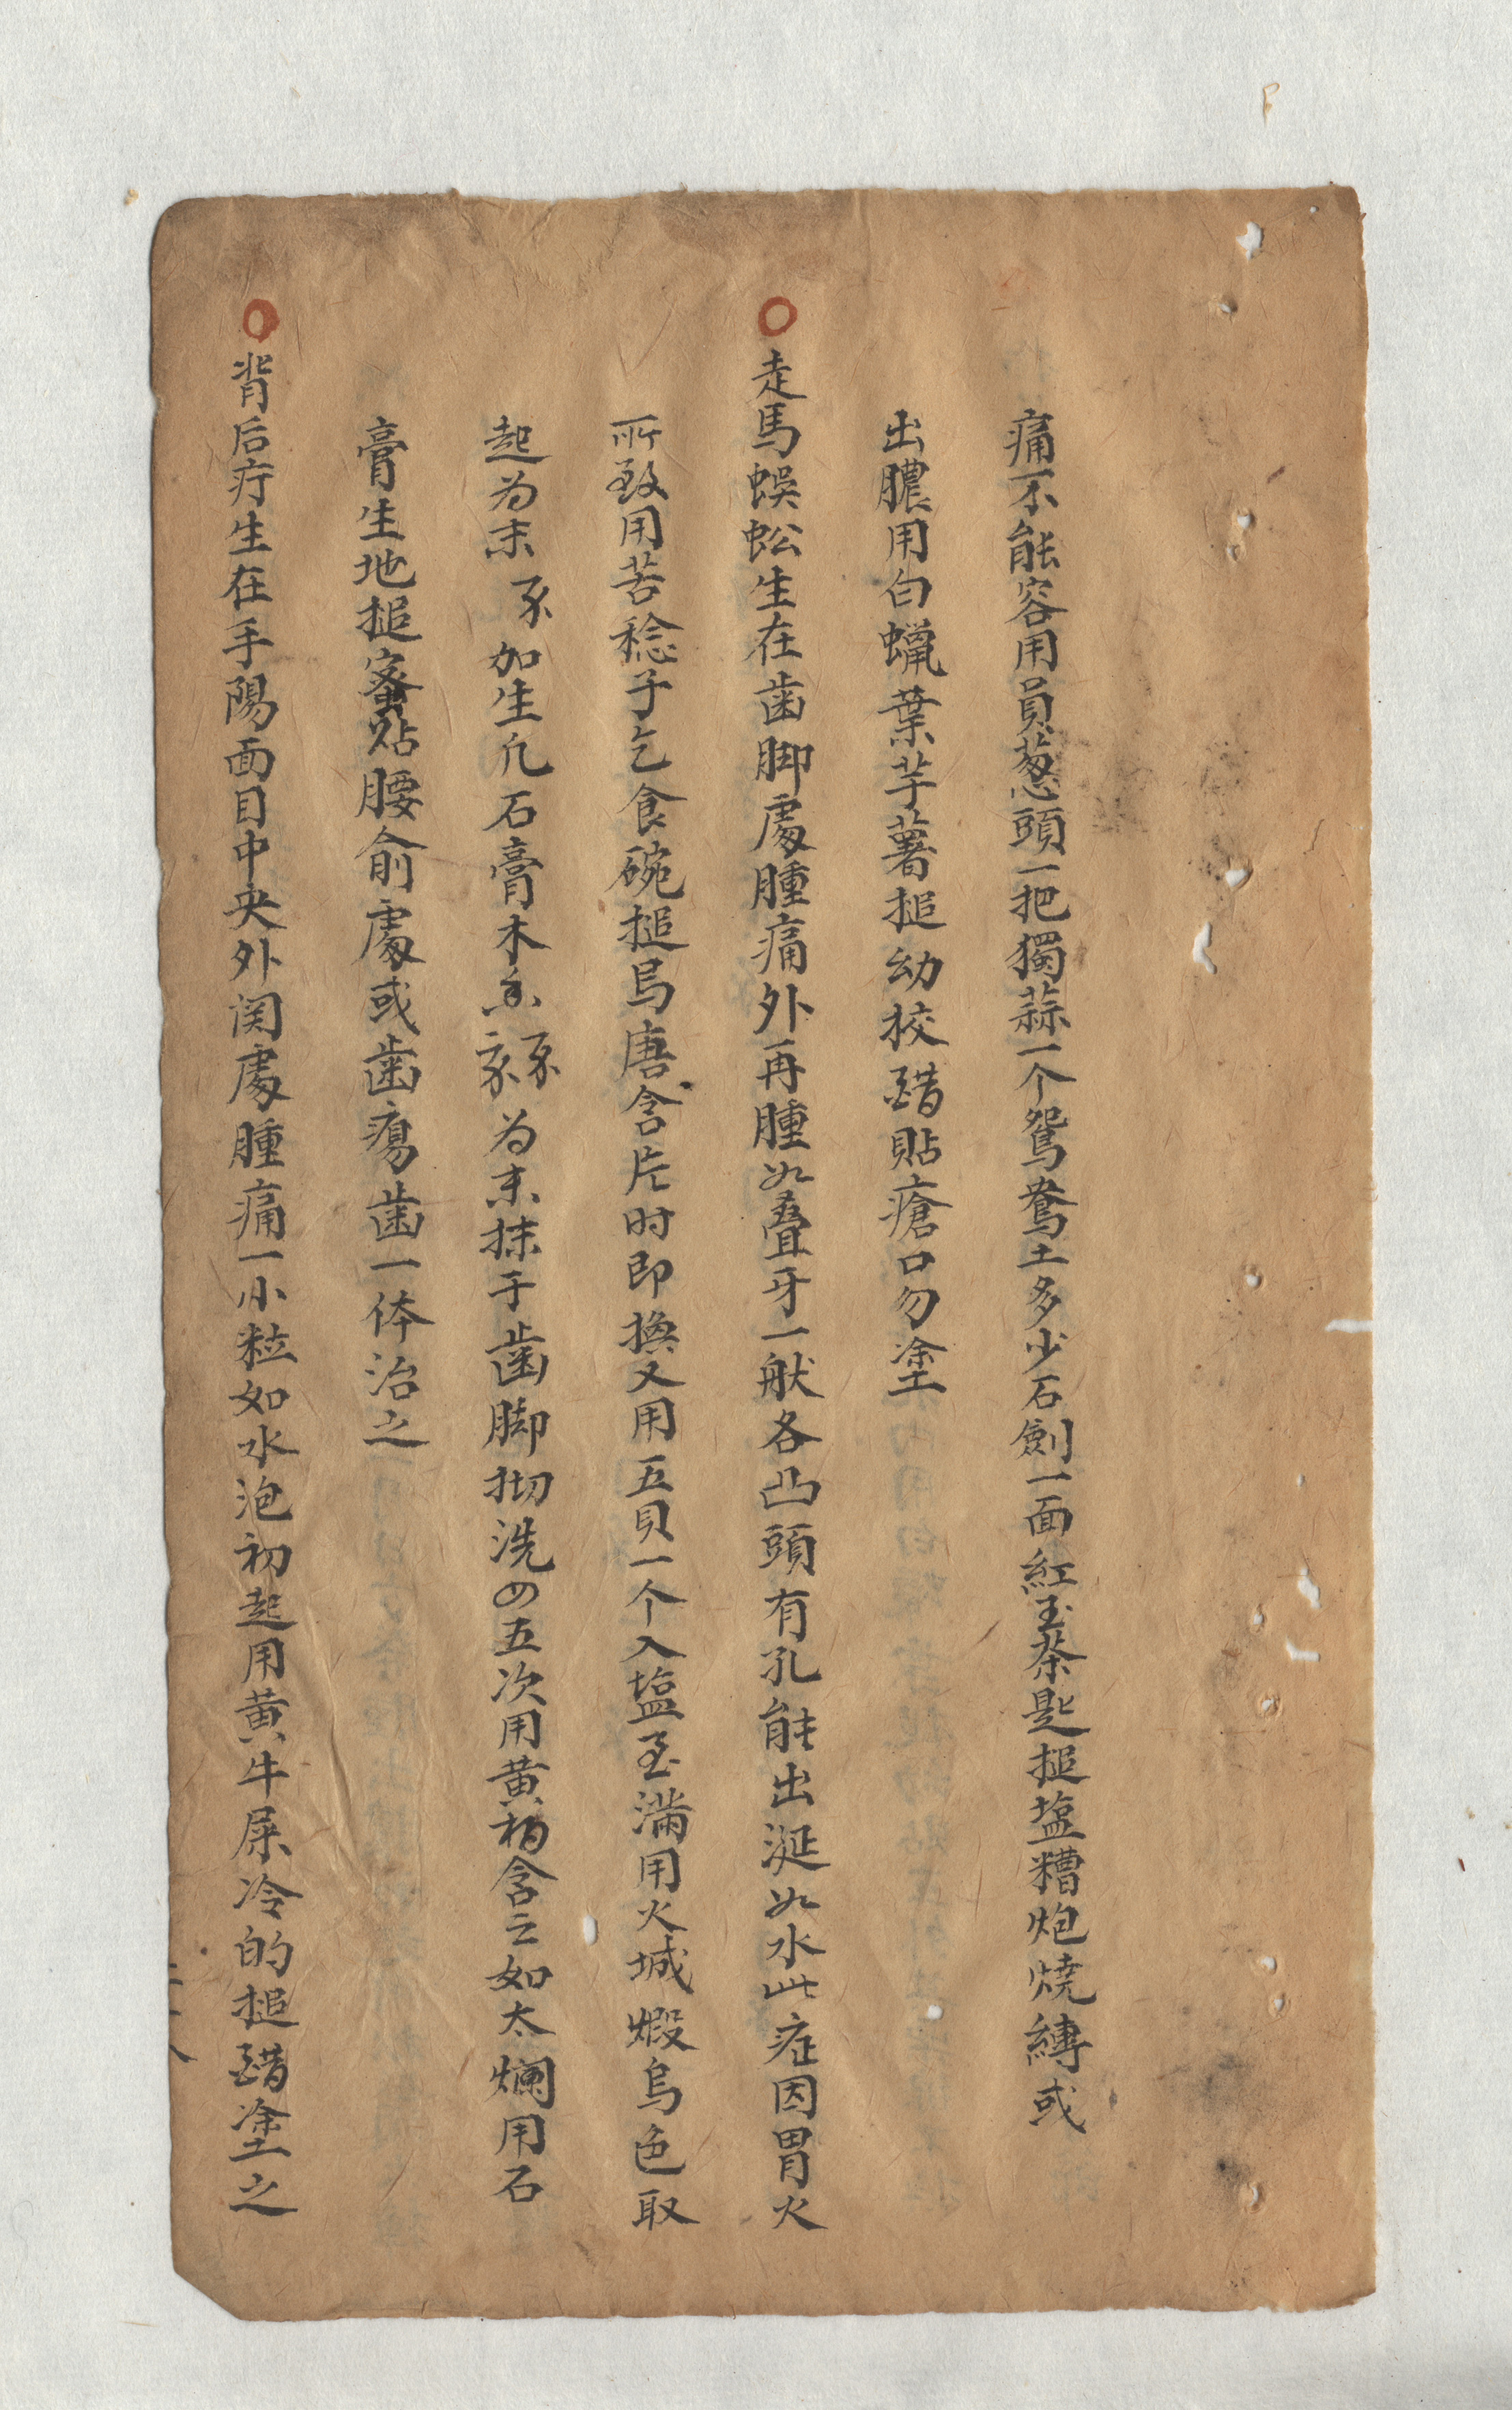 痛不能容用員葱頭一把獨蒜一个鴛鴦土多少石劍一面紅玉茶匙搥塩糟炮燒縳或
出膿用白蠟葉芋薯搥幼狡醋貼瘡口勿塗
○走馬蜈蚣生在齒脚處腫痛外再腫如叠牙一般各凸頭有孔能出涎如水此症因胃火
所致用苦稔子乞食碗搥烏唐含片时即換又用五貝一个入塩至滿用火城煅烏色取
起为末加生凡石膏木香为末抹于齒脚拗洗四五次用黄栢含之如太爛用石
膏生地搥蜜贴腰俞處或齒瘍齒一体治之
○背后疔生在手陽面目中央外関處腫痛一小粒如水泡初起用黄牛屎冷的搥醋塗之